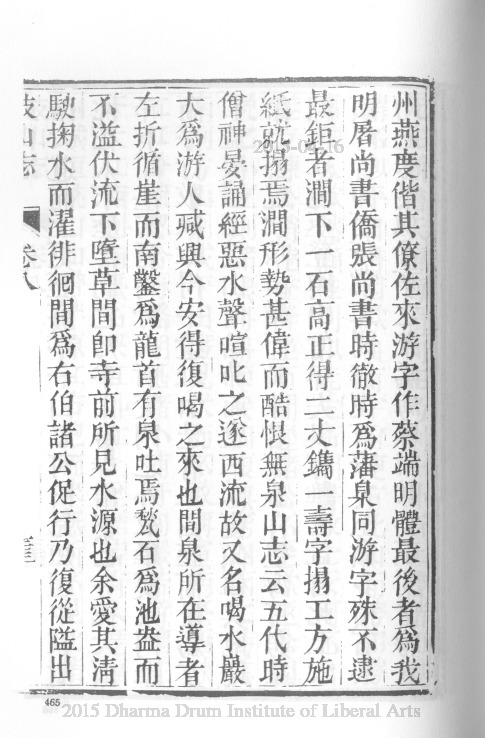 州燕度偕其僚佐來游字作蔡端明體最後者爲我
明屠尚書僑張尚書時徹時爲藩臬同游字殊不逮
最鉅者澗下一石高正得二丈鐫一壽字搨工方施
紙就搨焉澗形勢甚偉而酷恨無泉山志云五代時
僧神晏誦經惡水聲喧叱之遂西流故又名喝水巖
大爲游人減興今安得復喝之來也間泉所在導者
左折循崖而南鑿爲龍首有泉吐焉甃石爲池盎而
不溢伏流下墮草間卽寺前所見水源也余愛其淸
駛掬水而濯徘徊間爲右伯諸公促行乃復從隘出
鼓山志
卷八
465
2015 Dharma Drum Institute of Liberal Arts